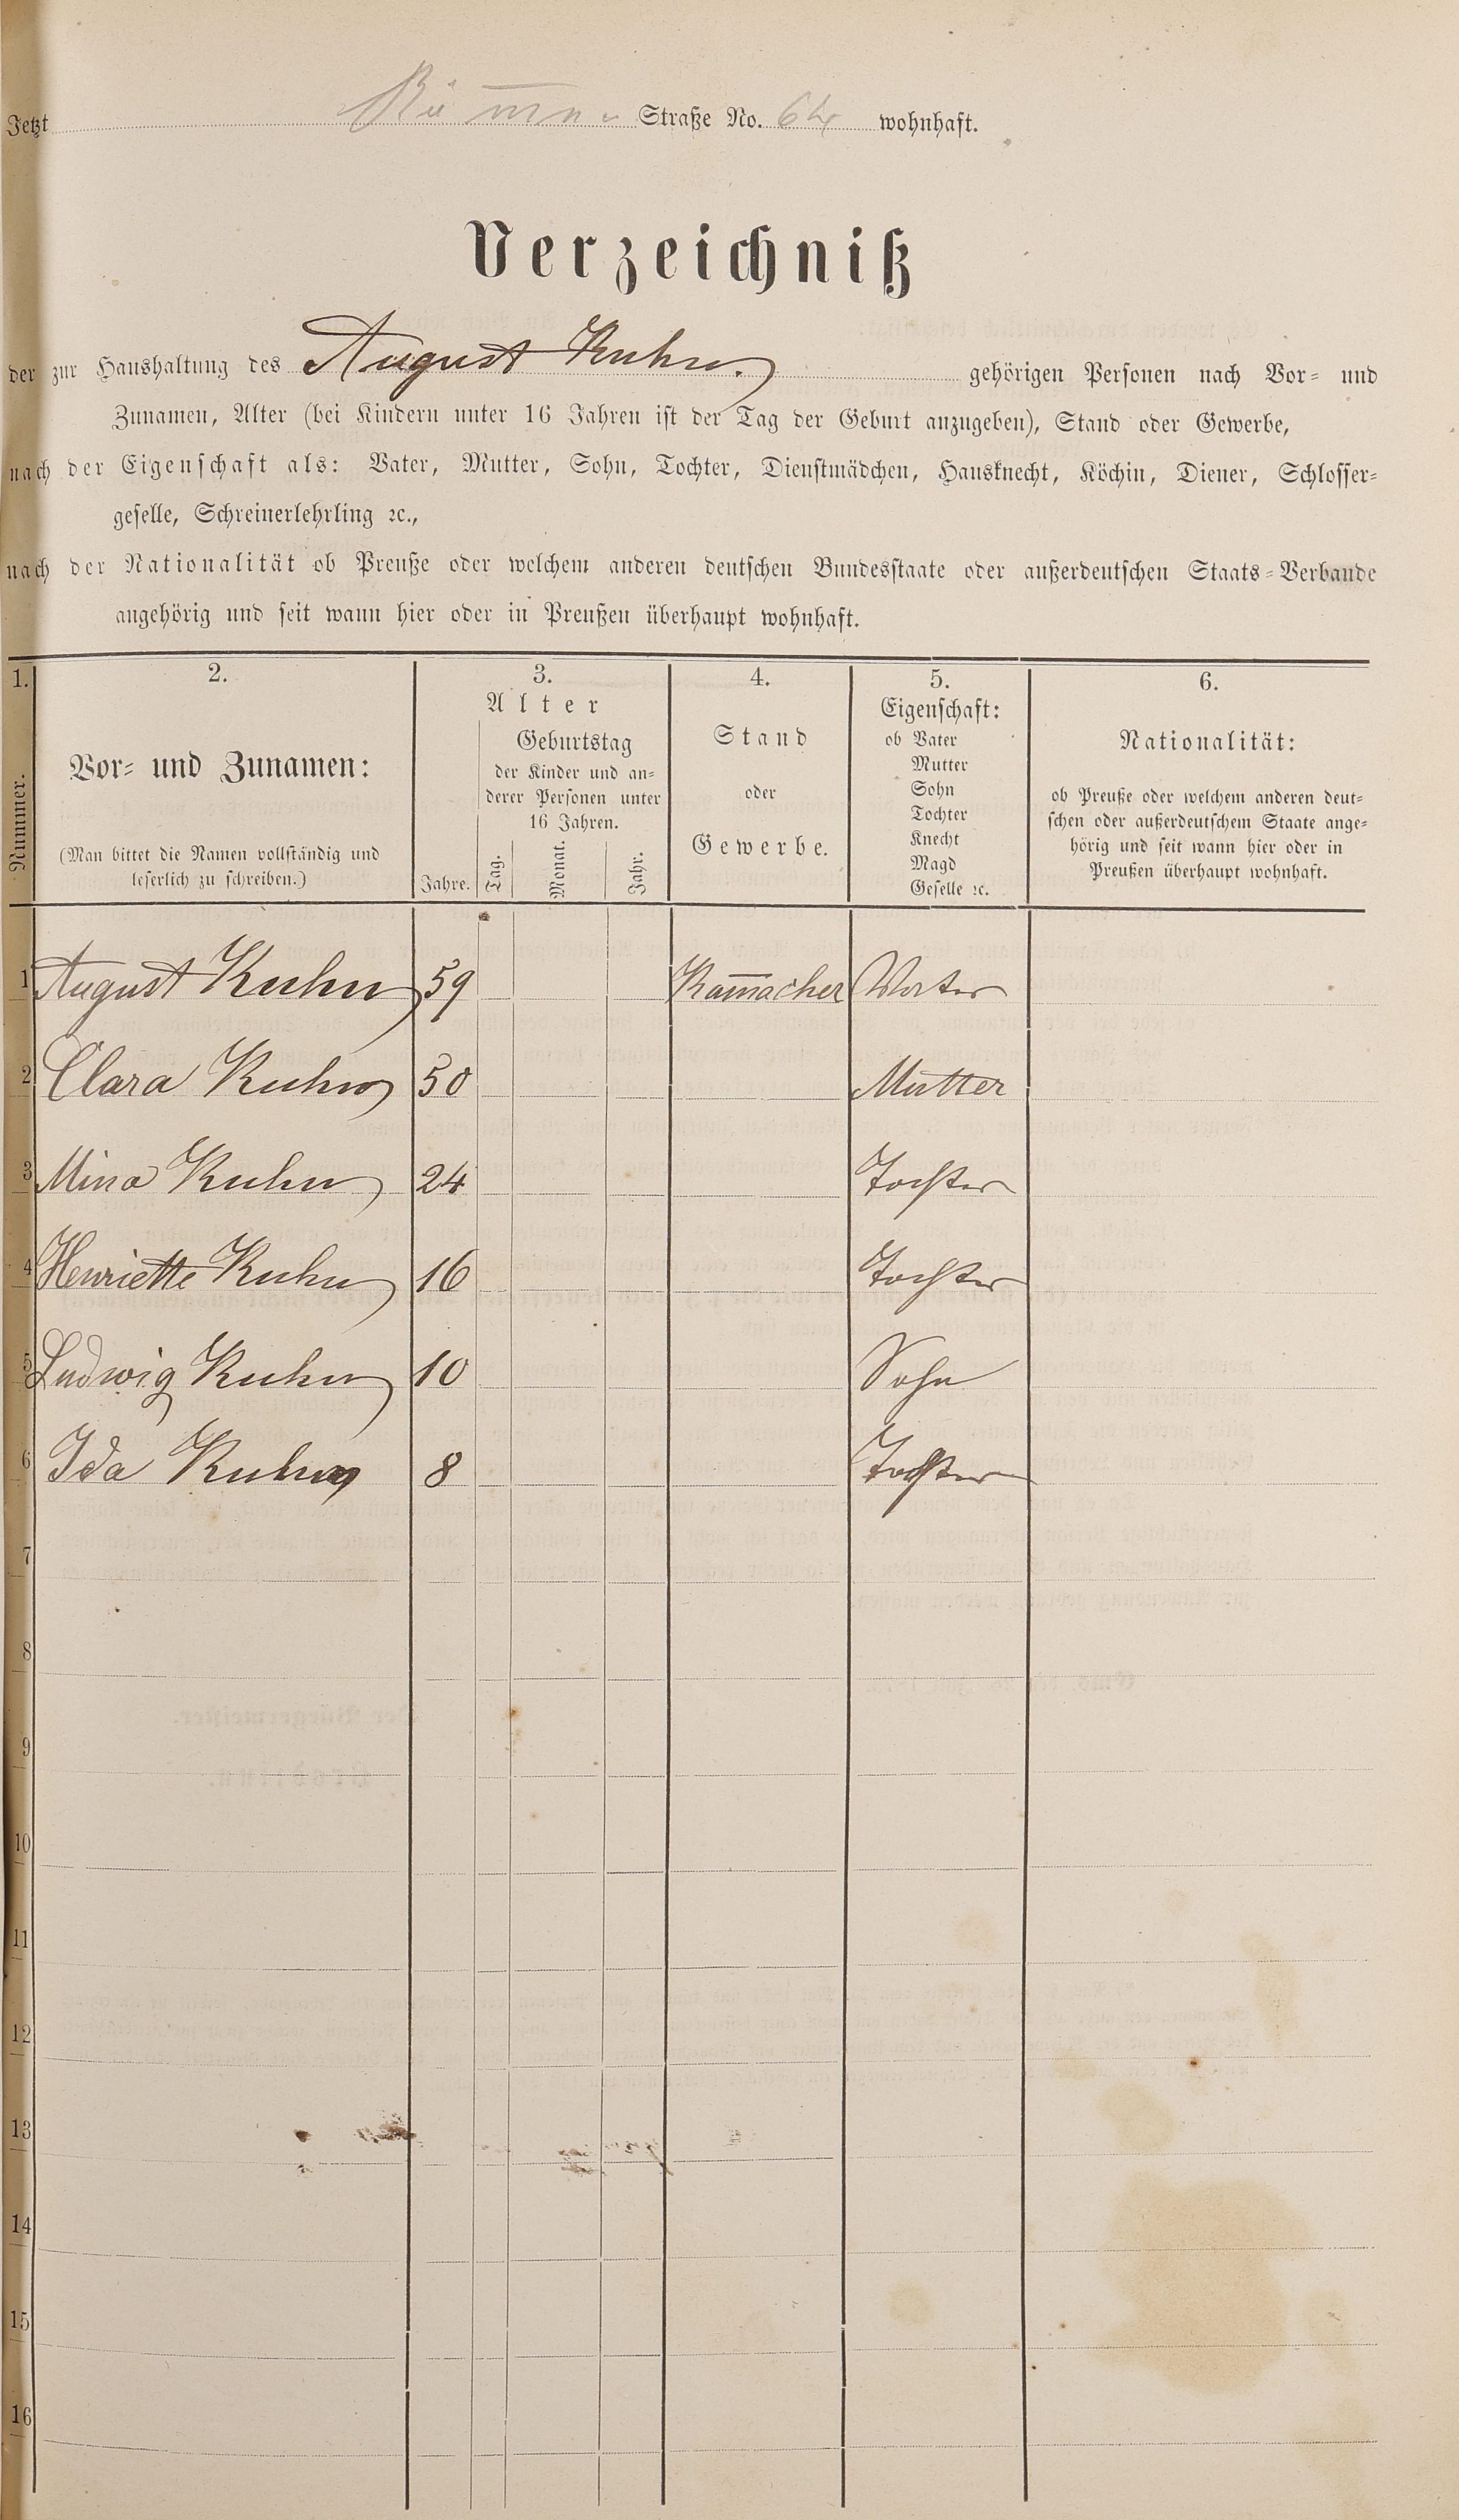 Jetzt Straße No. 64 wohnhaft.
Verzeichniß
der zur Haushaltung des August Kuhn. gehörigen Personen nach Vor- und
Zunamen, Alter (bei Kindern unter 16 Jahren ist der Tag der Geburt anzugeben), Stand oder Gewerbe,
nach der Eigenschaft als: Vater, Mutter, Sohn, Tochter, Dienstmädchen, Hausknecht, Köchin, Diener, Schlosser-
geselle, Schreinerlehrling ꝛc.,
nach der Nationalität ob Preuße oder welchem anderen deutschen Bundesstaate oder außerdeutschen Staats-Verbande
angehörig und seit wann hier oder in Preußen überhaupt wohnhaft.
1.
Nummer.
2.
Vor- und Zunamen:
(Man bittet die Namen vollständig und
leserlich zu schreiben.)
3.
Alter
Jahre.
Geburtstag
der Kinder und an-
derer Personen unter
16 Jahren.
Tag. Monat. Jahr.
4.
Stand
oder
Gewerbe.
5.
Eigenschaft:
ob Vater
Mutter
Sohn
Tochter
Knecht
Magd
Geselle ꝛc.
6.
Nationalität:
ob Preuße oder welchem anderen deut-
schen oder außerdeutschem Staate ange-
hörig und seit wann hier oder in
Preußen überhaupt wohnhaft.
1 August Kuhn 59 Kam̅acher Vater
2 Clara Kuhn 50 Mutter
3 Mina Kuhn 24 Tochter
4 Henriette Kuhn 16 Tochter
5 Ludwig Kuhn 10 Sohn
6 Ida Kuhn 8 Tochter
7
8
9
10
11
12
13
14
15
16